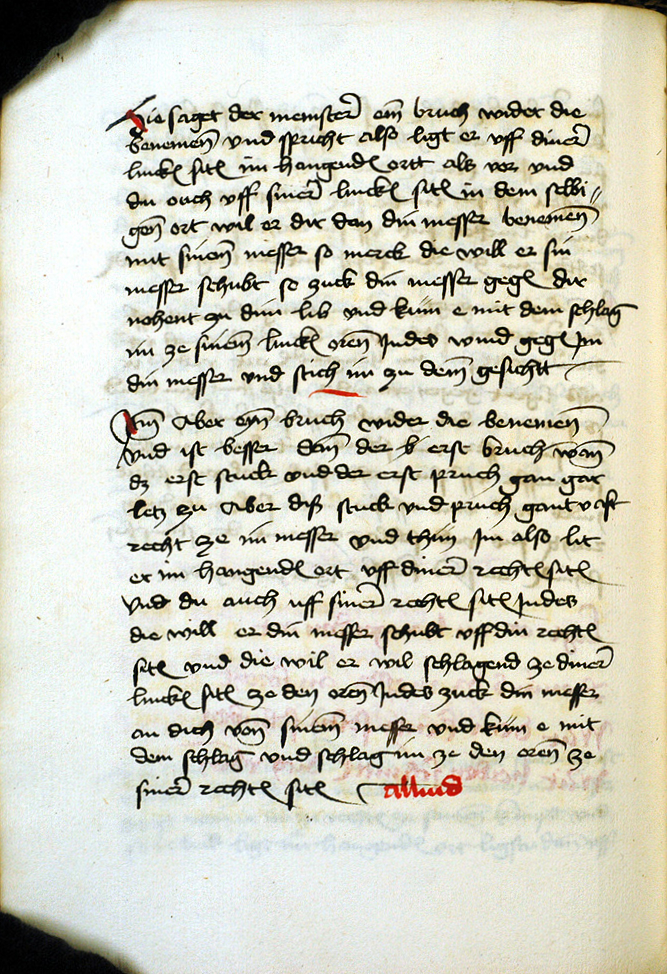 Hie saget der meinster ein bruch wider die
benemen vnd spricht also ligt er vff diner
lincken siten im hangenden ortt als vor vnd
du ouch vff siner lincken siten in dem selbi〃
gen ort wil er dir dan din messer benemen
mit sinem messer so merck die will er sin
messer schubt so zuck din messer gegen dir
nohent zu dim lib vnd kum e mit dem schlag
im ze sinem lincken oren Indes wind gegen Im
din messer vnd stich im zu dem gesichtt
Nim Aber ein bruch wider die benemen
vnd ist besser dann der b erst bruch wann
dz erst stuck vnd der erst pruch gan gar
letz zu Aber diß stuck vnd pruch gant vast
recht ze im messer vnd thun Im also lit
er im hangenden ort vff diner rechten siten
vnd du auch uff siner rechten siten Indes
die will er din messer schubt vff din rechten
siten vnd die wil er wil schlagend ze diner
lincken siten ze den oren Indes zuck din messer
an dich von sinem messer vnd kum e mit
dem schlag vnd schlag im ze den oren ze
siner rechten siten allmd